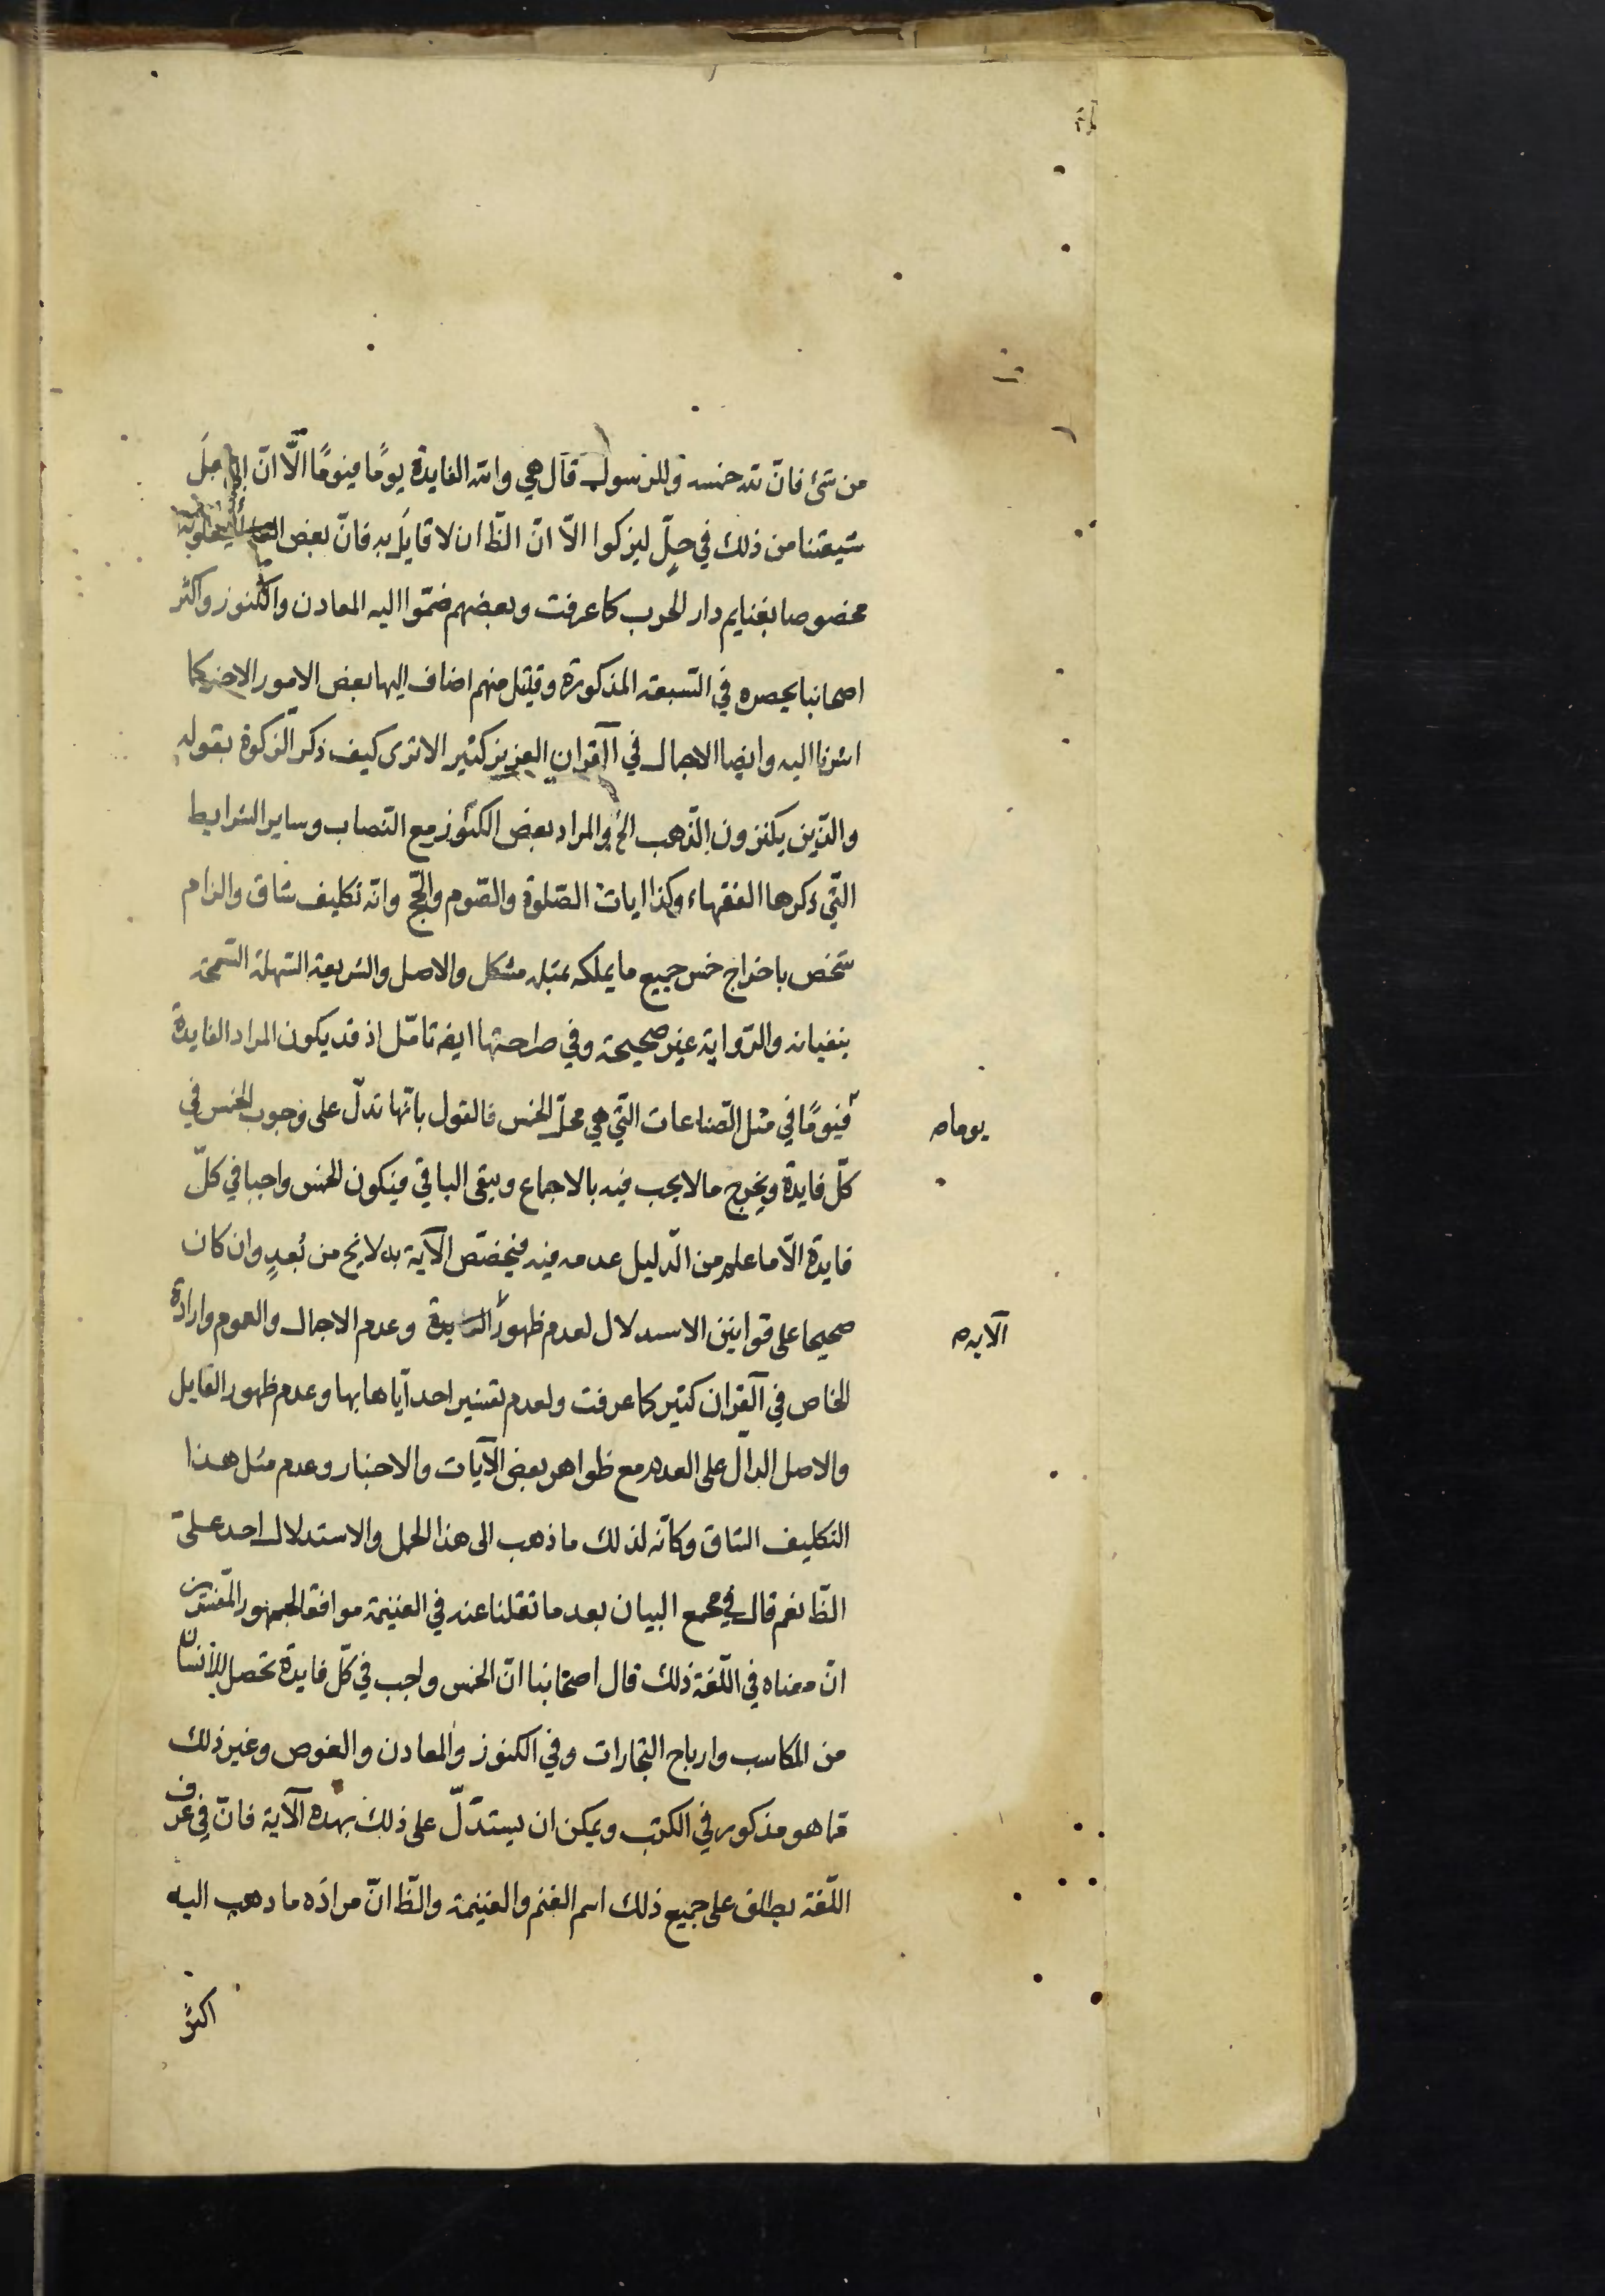 من شئ فانّ لله خمسه وللرسول قال هي والله الفايدة يومًا فيومًا الّا انّ ابي جعل
شيعتنا من ذلك في حلّ ليزكوا الّا انّ الظّ ان لا قايل به فانّ بعض يجعلونه
مخصوصا بغنايم دار الحرب كما عرفت وبعضهم ضمّوا اليه المعادن والكنوز واكثر
اصحابنا يحصره في السّبعة المذكورة وقليل منهم اضاف اليها بعض الامور الاخر كما
اشرنا اليه وايضا الاجمال في القران العزيز كثير الا ترى كيف ذكر الزكوة بقوله
والذين يكنزون الذّهب الخ والمراد بعض الكنوز مع النصاب وساير الشرايط
الّتي ذكرها الفقهاء وكذا ايات الصّلوة والصّوم والحجّ وانّه تكليف شاق والزام
شخص باخراج خمس جميع ما يملكه بمثله مشكل والاصل والشريعة السّهلة السّمحة
ينفيانه والرّواية غير صحيحة وفي صراحتها ايضا تامّل اذ قد يكون المراد الفايدة
يوماه
فيومًا في مثل الصّناعات الّتي هي محلّ الخمس فالقول بانّها تدلّ على وجوب الخمس في
كلّ فايدة ويخرج ما لا يجب فيه بالاجماع ويبقى الباقي فيكون الخمس واجبا في كلّ
فايدة الّا ما علم من الدّليل عدمه فيه فيخصّص الآية به لا يخ من بُعدٍ وان كان
صحيحا على قوانين الاستدلال لعدم ظهور وعدم الاجمال والعموم وارادة
الآيه ه
الخاص في القران كثير كما عرفت ولعدم تفسير احد ايّاها بها وعدم ظهور القايل
والاصل الدالّ على العدم مع ظواهر بعض الآيات والاخبار وعدم مثل هذا
التكليف الشاق وكانّه لذلك ما ذهب الى هذا الحمل والاستدلال احد على
الظّ نعم قال في مجمع البيان بعد ما نقلنا عنه في الغنيمة موافقا لجمهور المفسّرين
انّ معناه في اللّغة ذلك قال اصحابنا انّ الخمس واجب في كلّ فايدة تحصل للانسان
من المكاسب وارباح التجارات وفي الكنوز والمعادن والغوص وغير ذلك
ممّا هو مذكور في الكتب ويمكن ان يستدلّ على ذلك بهذه الآية فانّ في عرف
اللّغة يطلق على جميع ذلك اسم الغنم والغنيمة والظّ انّ مراده ما ذهب اليه
اكثر